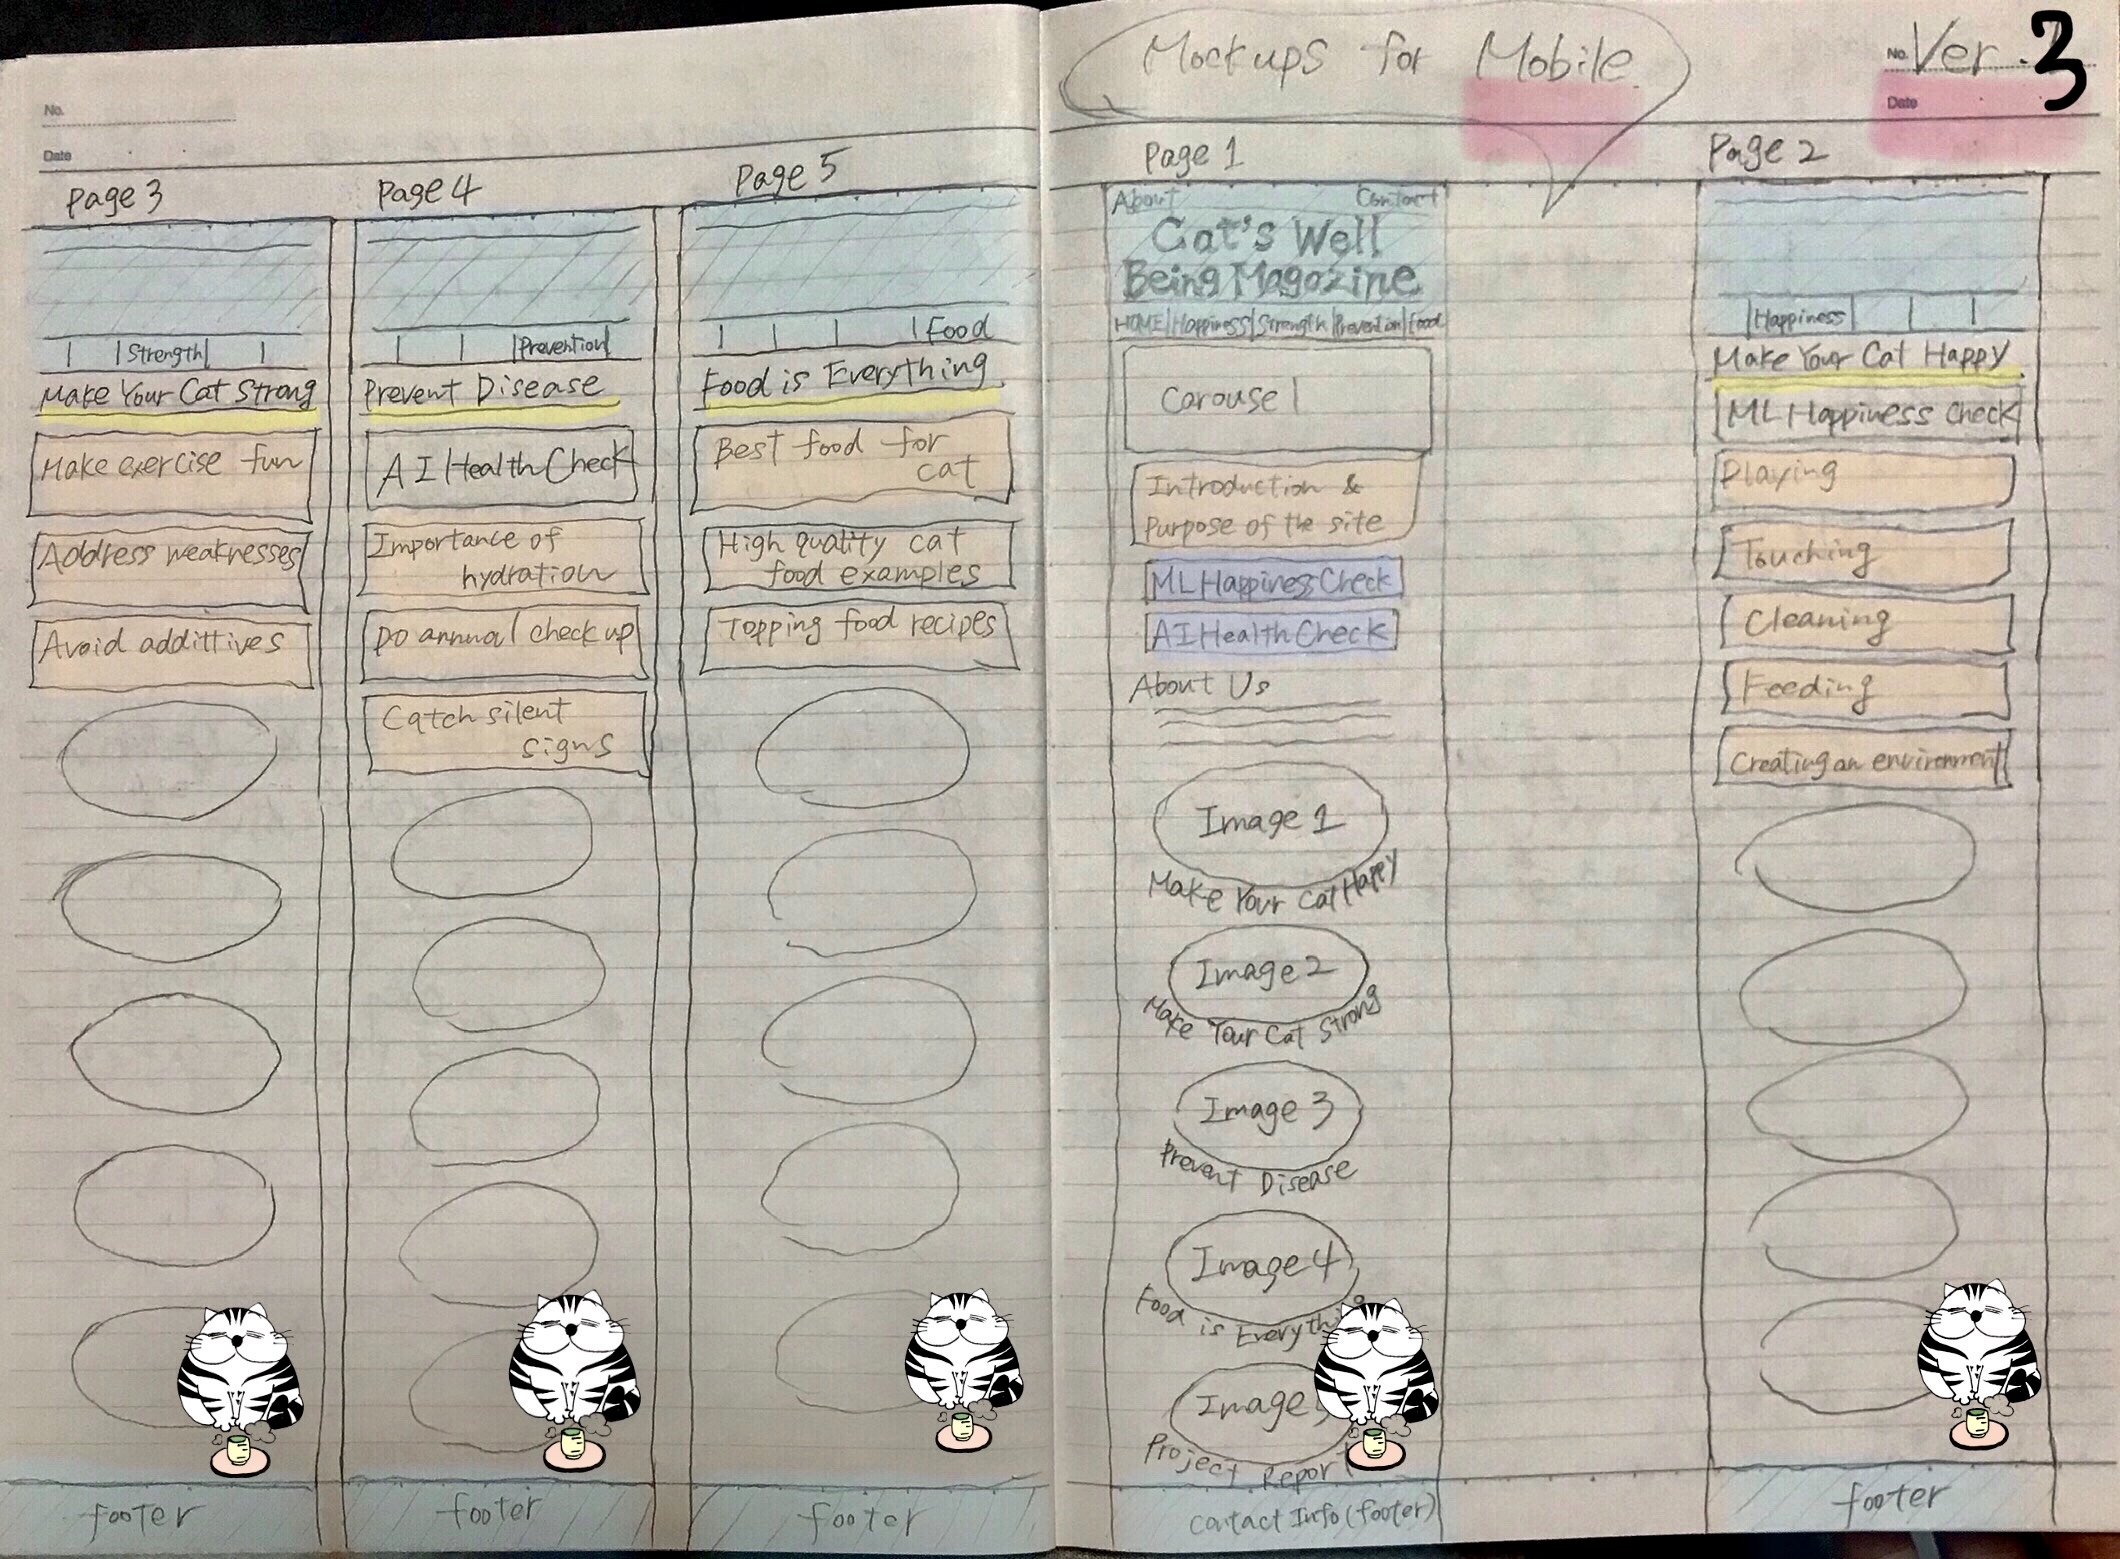 No.
Date
Page 3
Strength
Make Your Cat Strong
Make exercise fun
Address weaknesses
Avoid addittives
footer
Page 4
Prevention
Prevent Disease
AI Health Check
Importance of
hydration
Do annual check up
Catch silent
signs
footer
Page 5
Food
Food is Everything
Best food for
cat
High quality cat
food examples
Topping food recipes
footer
Mockups for Mobile
No. Ver. 3
Date
Page 1
About Contact
Cat's Well
Being Magazine
HOME Happiness Strength Prevention Food
Carousel
Introduction &
Purpose of the site
ML Happiness Check
AI Health Check
About Us
Image 1
Make Your Cat Happy
Image 2
Make Your Cat Strong
Image 3
Prevent Disease
Image 4
Food is Everythi
Image
Project Report
Contact Info (footer)
Page 2
Happiness
Make Your Cat Happy
ML Happiness Check
Playing
Touching
Cleaning
Feeding
Creating an environment
footer